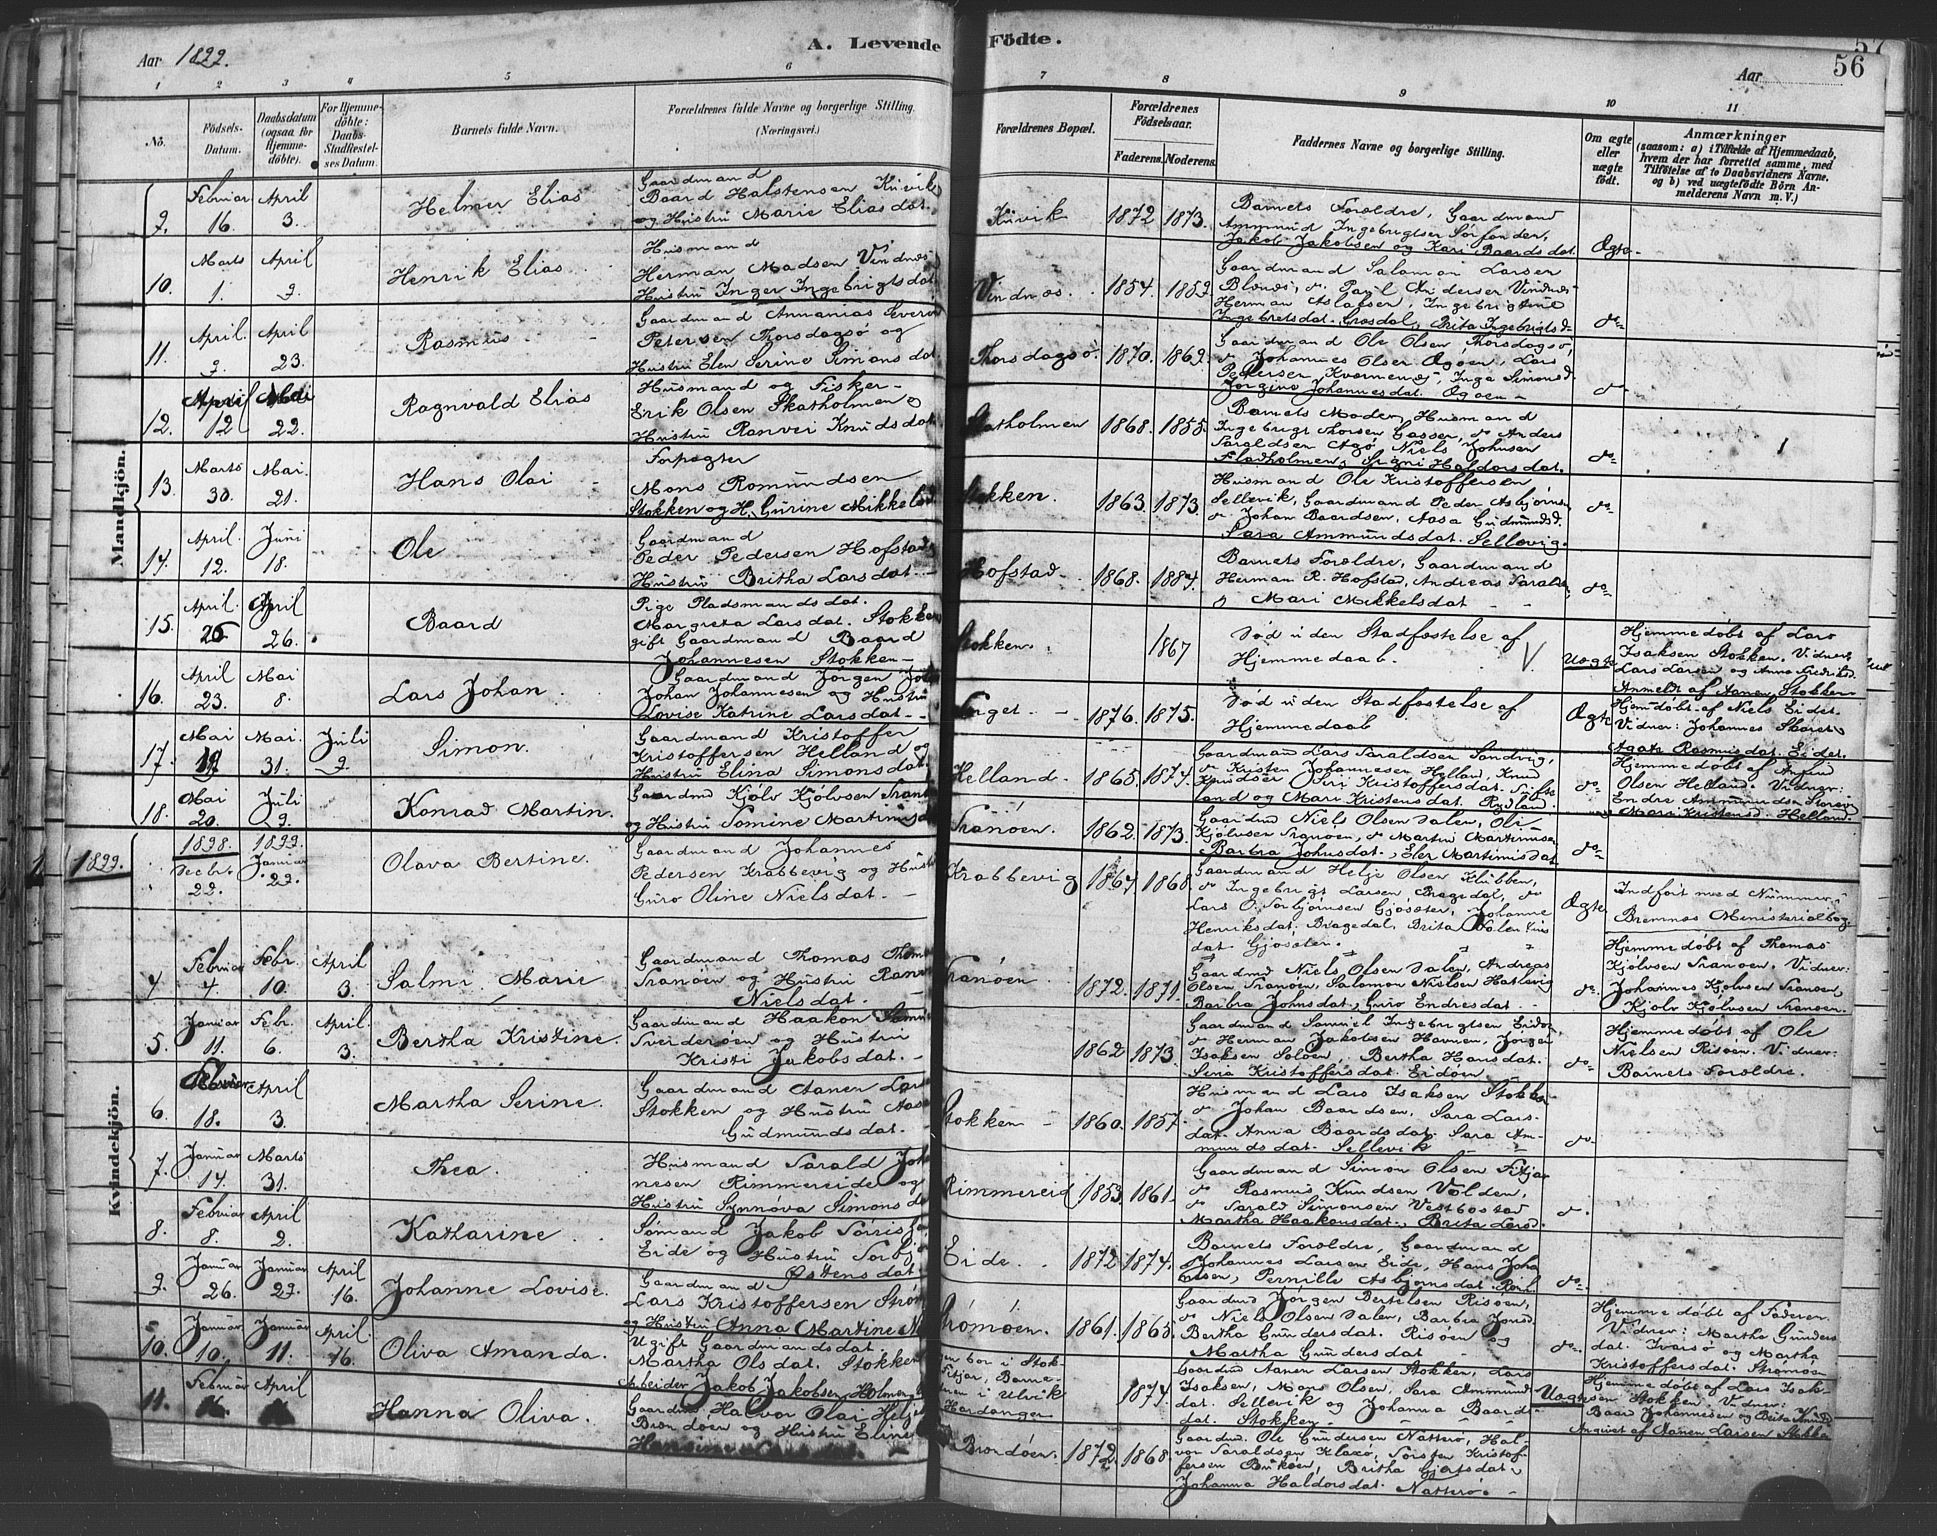 Aar 1899.
A. Levende Födte.
57
56
Aar
1 2 3 4 5 6 7 8 9 10 11
No.
Födsels-Datum.
Daabsdatum (ogsaa for Hjemme-döbte).
For Hjemme-döbte: Daabs-Stadfæstel-ses Datum.
Barnets fulde Navn.
Forældrenes fulde Navne og borgerlige Stilling.
(Næringsvei.)
Forældrenes Bopæl.
Forældrenes Födselsaar.
Faderens. Moderens.
Faddernes Navne og borgerlige Stilling.
Om ægte eller uægte født.
Anmærkninger
(saasom: a) i Tilfælde af Hjemmedaab, hvem der har forrettet samme, med Tilföielse af to Daabsvidners Navne. og b) ved uægtefödte Börn Anmelderens Navn m. V.)
Mandkjön.
9. Februar 16. April 3. Helmer Elias
Gaardmand
Baard Halstensen Kuvik
og Hustru Marie Eliasdat.
Kuvik 1872 1873.
Barnets Forældre, Gaardmand
Ammund Ingebrigtsen Sørfonden,
Jakob Jakobsen og Kari Baardsdat.
Ægte.
10. Marts 1. April 9. Henrik Elias
Husmand
Herman Madsen Vindnæs
Hustru Inger Ingebrigtsdat.
Vindnæs. 1854. 1859.
Gaardmand Salamon Larsen
Herman Aslaksen, Ingebrigtsen
do
11. April. 9. April 23. Rasmus
Gaardmand Annanias Severin
Petersen Thorsdagsø og
Hustru Elen Serine Simonsdat.
Thorsdagsø. 1870. 1869.
Gaardmand Ole Olsen Thorsdagsø,
do Johannes Olsen Ægøen, Lars
Pedersen Kvernenæs, Inga Simonsd.
Jørgine Johannesdat. Ægøen
do
12. April 12 Mai 22. Ragnvald Elias
Husmand og Fisker
Erik Olsen Skatholmen
Hustru Ranvei Knudsdat.
Skatholmen 1868. 1855.
Barnets Moder, Husmand
Ingebrigt Thorsen Gassen, do Anders
Taraldsen Agø, Niels Johnsen
Fladholmen, Signi Haldorsdat.
do
13. Marts 30. Mai. 21. Hans Olai
Forpagter
Mons Romundsen
Stokken og H. Gurine Mikkelsd.
Stokken. 1863. 1873.
Husmand Ole Kristoffersen
Sellevik, Gaardmand Peder Asbjørnsen
do Johan Baardsen, Aasa Gudmundsd.
Sara Ammundsdat. Sellevig.
do
14. April. 12. Juni 18. Ole
Gaardmand
Peder Pedersen Hofstad
Hustru Britha Larsdat.
Hofstad. 1868. 1884.
Barnets Forældre, Gaardmand
Herman R. Hofstad, Andreas Taralds
og Mari Mikkelsdat
do
15. April. 26 April 26. Baard
Pige Pladsmandsdat.
Margreta Larsdat. Stokken
gift Gaardmand Baard
Johannesen Stokken
Stokken. 1867
Død uden Stadfæstelse af
Hjemmedaab.
V
Uægte
Hjemmedøbt af Lars
Isaksen Stokken. Vidner,
Lars Larsen og Anna Fredriksd.
Anmeldt af Aanen Stokken
16. April 23. Mai 8. Lars Johan
Gaardmand Jørgen
Johan Johannesen og Hustru
Lovise Katrine Larsdat
1876. 1875.
Død uden Stadfæstelse af
Hjemmedaab
Ægte
Hjemdøbt af Niels Eidet.
Vidner: Johannes Skaret
Agate Rasmusdat. Eidet.
17. Mai 19 Mai. 31. Juli 9. Simon.
Gaardmand Kristoffer
Kristoffersen Helland og
Hustru Elina Simonsdat.
Helland. 1865. 1874.
Gaardmand Lars Taraldsen Sandvig,
do Kristen Johannesen Helland, Knud
Knudsen Siri Kristoffersdat. Tufte
land og Mari Kristensdat. Rydland.
do
Hjemmedøbt af Arfin
Olsen Helland. Vidner:
Endre Ammundsen
Mari Kristensd. Helland.
18. Mai 20. Juli 9. Konrad Martin.
Gaardmd Kjølv Kjølvsen Tranøen
og Hustru Tomine Martinusdat
Tranøen. 1862. 1873.
Gaardmd Niels Olsen Dalen, Oli
Kjølvsen Tranøen, do Martin Martinusen
Barbra Johnsdat., Elen Martinusdat
do
1899.
Kvindekjön.
1898. Decbr. 22. 1899. Januar 29. Olava Bertine.
Gaardmand Johannes
Pedersen Krabbevig og Hustru
Guro Oline Nielsdat.
Krabbevig 1864 1868.
Gaardmand Helje Olsen Klubben,
do Ingebrigt Larsen Bragedal, do
Lars O. Torbjørnsen Gjøsæter, Johanne
Henriksdat. Bragedal, Brita
dat. Gjøsæter.
Ægte.
Indført med Nummer i
Bremnæs Ministerialbog.
4. Februar 4. Febr. 10. April 3. Salmi Marie
Gaardmand Thomas Thom
Tranøen og Hustru Ranvei
Nielsdat.
Tranøen 1872. 1871.
Gaardmd Niels Olsen Dalen, Andreas
Olsen Tranøen, Salomon Nielsen Hatlevig
Barbra Johnsdat., Guro Endresdat
do
Hjemmedøbt af Thomas
Kjølvsen Tranøen. Vidner:
Johannes Kjølvsen Tranøen,
Kjølv Kjølvsen Tranøen.
5. Januar 11. Febr. 6. April. 3. Bertha Kristine.
Gaardmand Haakon
Sverderøen og Hustru
Kristi Jakobsdat.
1862 1873.
Gaardmand Samuel Ingebrigtsen Eidøen
do Herman Jakobsen Havnen, Jørgen
Isaksen Soløen, Bertha Hansdat.
Sina Kristoffersdat. Eidøen
do
Hjemmedøbt af Ole
Nielsen Risøen. Vidner:
Barnets Forældre.
6. 18. April 3. Martha Serine.
Gaardmand Aanen Larsen
Stokken og Hustru Aasa
Gudmundsdat.
Stokken 1860. 1857.
Husmand Lars Isaksen Stokken
do Johan Baardsen, Sara Lars-
dat. Anna Baardsdat. Sara Am-
mundsdat. Sellevik
do
7. Januar 14. Marts 31. Thea.
Husmand Tarald Johan
nesen Rimmereide og
Hustru Synnøva Simonsdat
Rimmereid 1853. 1861.
Gaardmand Simon Olsen Fitjar
do Rasmus Knudsen Volden,
do Tarald Simonsen Vestbostad
Martha Haakonsdat., Brita Larsd.
do
8. Februar 8. April 2. Katharine.
Sømand Jakob
Eide og Hustru Torbjø
Østensdat.
Eide. 1872 1874.
Barnets Forældre, Gaardmand
Johannes Larsen Eide, Hans Joha
nesen, Pernille Asbjørnsdat.
do
9. Januar 26. Januar 29. April 16. Johanne Lovise.
Gaardmand
Lars Kristoffersen Strøm
og Hustru Anna Martine
Strømøen. 1861. 1865.
Gaardmd Jørgen Bertelsen Risøen,
do Niels Olsen Dalen, Barbra Jonsd.
Bertha Gundersdat. Risøen og
Martha Gundersdat
do
Hjemmedøbt af Faderen.
Vidner: Martha Gunders
dat. Ivarsø og Martha
Kristoffersdat. Strømøen
10. Januar 10. Januar 11. April. 16. Oliva Amanda.
Ugift Gaardmandsdat.
Martha Olsdat. Stokken
Arbeider Jakob Jakobsen Holmen
bor i Stok-
Fitjar, Barne-
i Ulvik
Hardanger
1874.
Gaardmd Aanen Larsen Stokken, Lars
Isaksen, Mons Olsen, Sara Ammunds
dat. Sellevik og Johanna Baards
dat. Stokken
Uægte
Hjemmedøbt af Lars Isak-
sen Stokken. Vidner:
Baar Johannesen og Brita Knud
Angivet af Aanen Larsen Stokken
11. Februar April Hanna Oliva.
Gaardmd. Halvor Olai Helje
Brondøen og Hustru Eline
Brondøen. 1872. 1868.
Gaardmd. Ole Gundersen Natterø, Hal-
vor Taraldsen Klaxø, Torsten Kristof-
fersen Bukøen, Britha Gjertsdat.
Johanna Haldorsdat. Natterø.